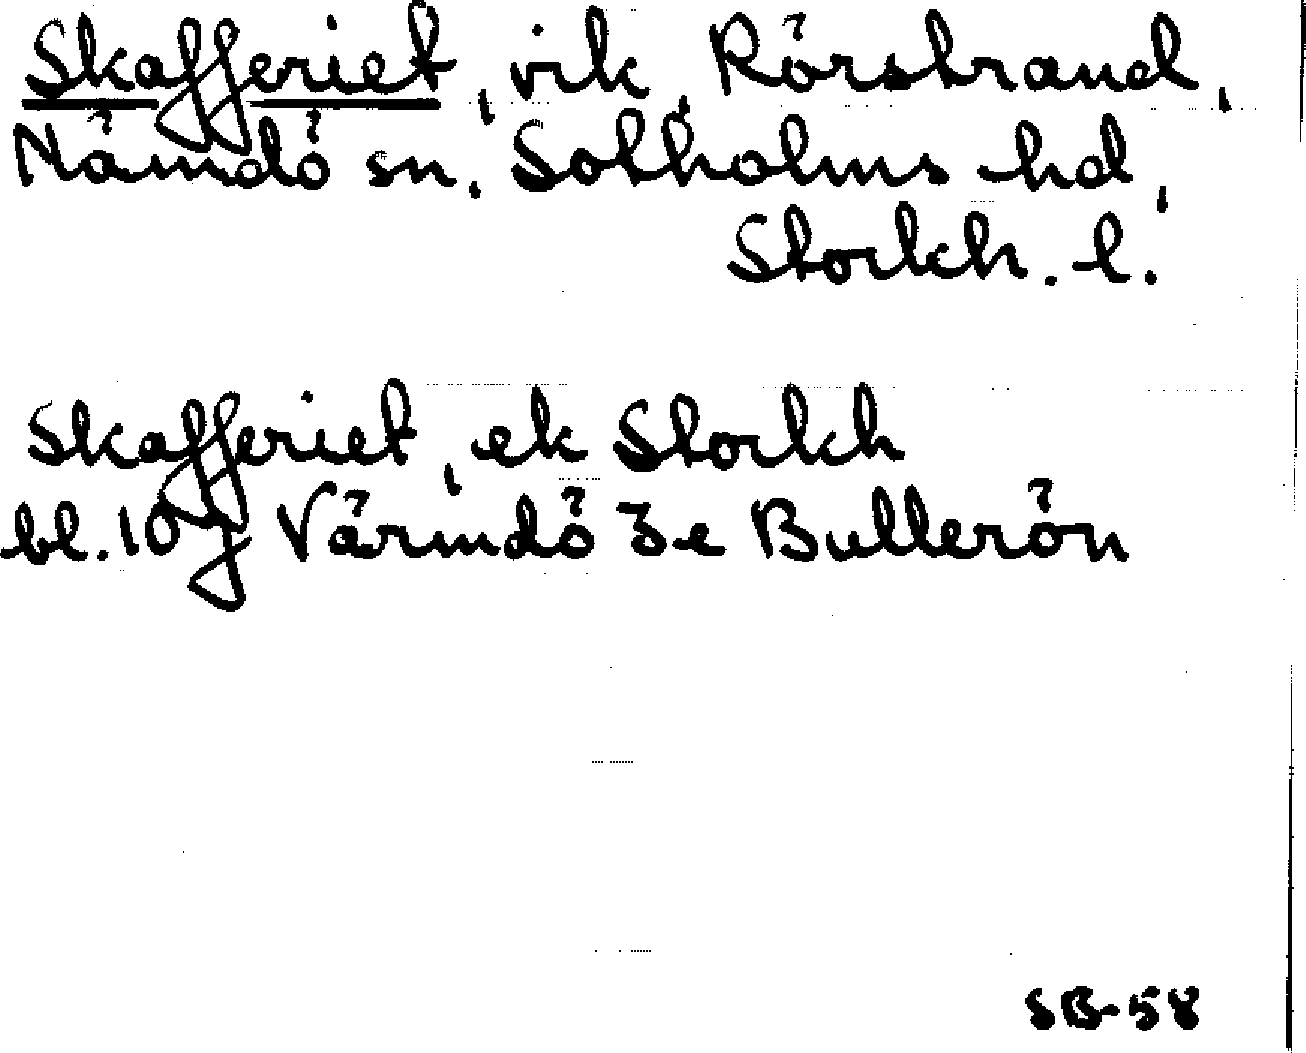 Skafferiet, vik, Rörstrand,
Nämdö sn. Sotholms hd,
Storkh. l.
Skafferiet, ek Storkh
bl. 107 Värmdö 3e Bullerön
SB-58